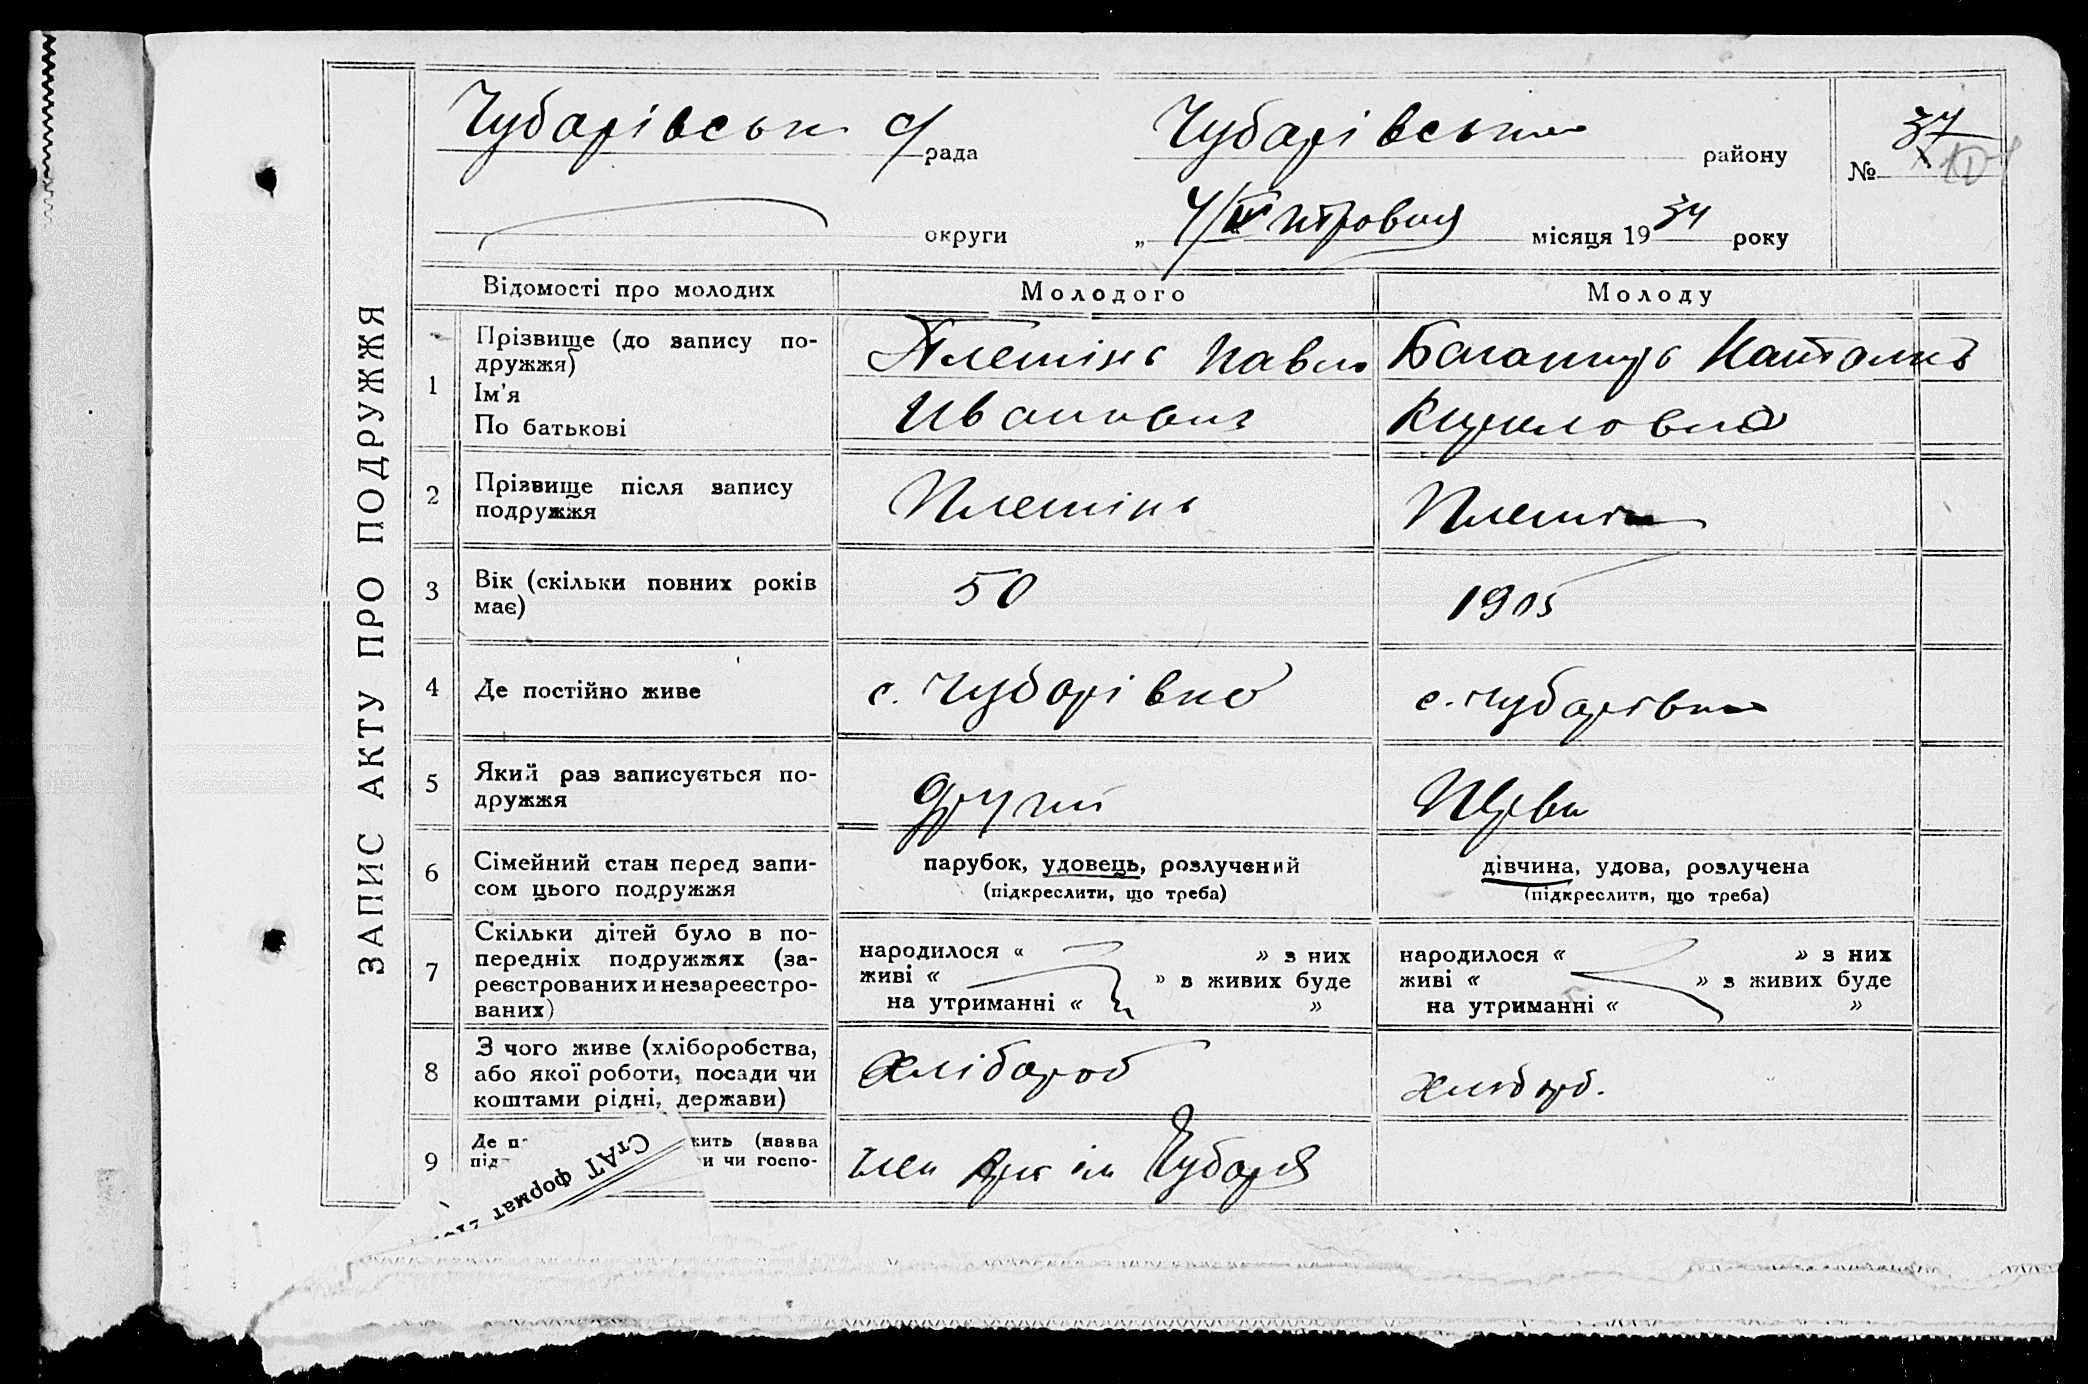 ЗАПИС АКТУ ПРО ПОДРУЖЖЯ
Чубарівськ с/рада Чубарівськ району № 37
округи „ 4/IV місяця 1934 року
Відомості про молодих Молодого Молоду
1 Прізвище (до запису по-
дружжя)
Ім'я
По батькові
Племінь Павло
Иванович
Наталив
Кириловна
2 Прізвище після запису
подружжя
Племінь Племін
3 Вік (скільки повних років
має)
50 1905
4 Де постійно живе с. Чубарівка с. Чубарівка
5 Який раз записується по-
дружжя
другий Перви
6 Сімейний стан перед запи-
сом цього подружжя
парубок, удовець, розлучений
(підкреслити, що треба)
дівчина, удова, розлучена
(підкреслити, що треба)
7 Скільки дітей було в по-
передніх подружжях (за-
реєстрованих и незареєстро-
ваних)
народилося « » з них
живі « » з живих буде
на утриманні « »
народилося « » з них
живі « » з живих буде
на утриманні « »
8 З чого живе (хліборобства,
або якої роботи, посади чи
коштами рідні, держави)
Хлібороб хлібороб.
9 Де жить (назва
під и чи госпо-
член ім Чубаря
СтАТ формат